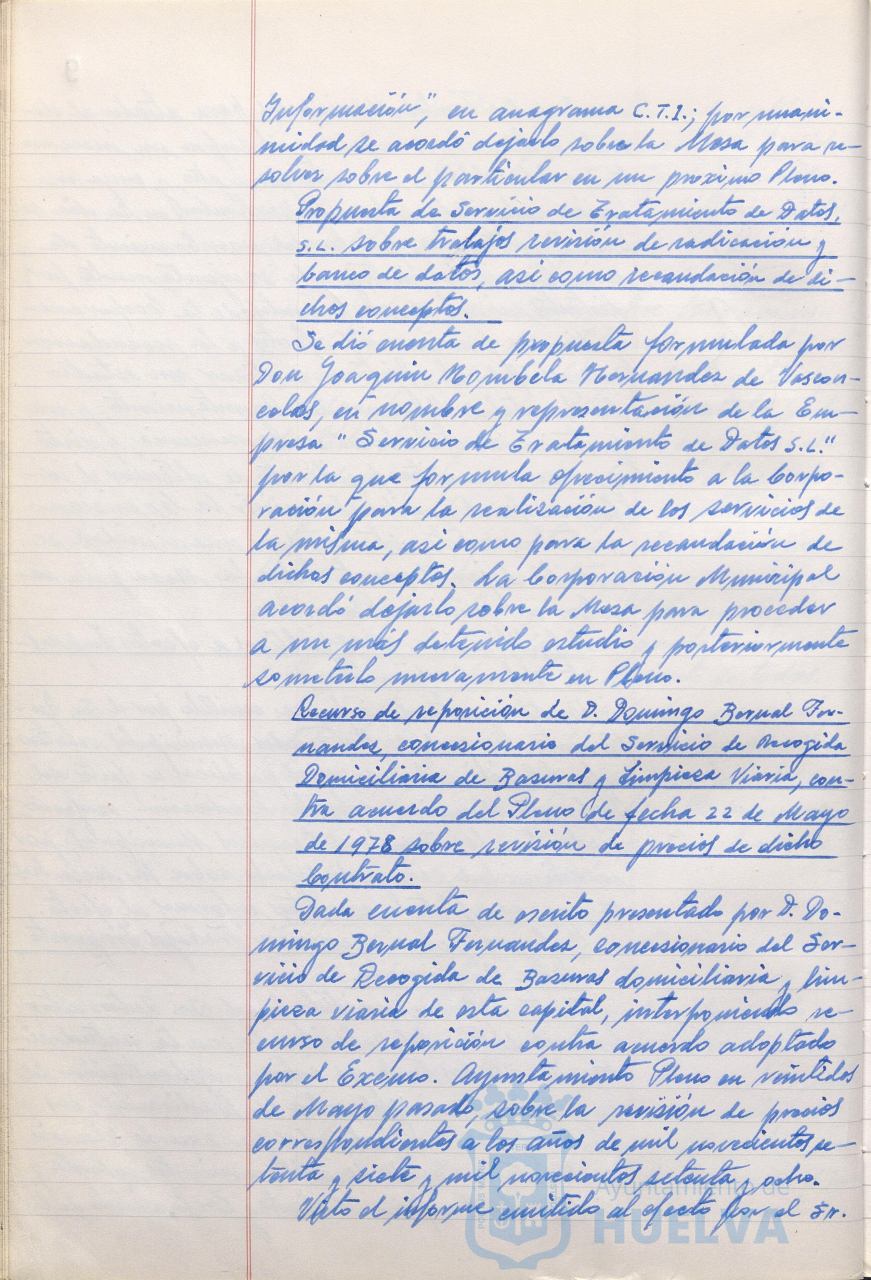 Información", en anagrama C.T.I.; por unani-
midad se acordó dejarlo sobre la Mesa para re-
solver sobre el particular en un proximo Pleno.
Propuesta de Servicio de Tratamiento de Datos,
S.L. sobre trabajos revisión de radicación y
banco de datos, así como recaudación de di-
chos conceptos.
Se dió cuenta de propuesta formulada por
Don Joaquin Mombela Hernandez de Vascon-
celos, en nombre y representación de la Em-
presa "Servicio de Tratamiento de Datos S.L."
por la que formula ofrecimiento a la Corpo-
ración para la realización de los servicios de
la misma, así como para la recaudación de
dichos conceptos. La Corporación Municipal
acordó dejarlo sobre la Mesa para proceder
a un más detenido estudio y posteriormente
someterlo nuevamente en Pleno.
Recurso de reposición de D. Domingo Bernal Fer-
nandez, concesionario del Servicio de Recogida
Domiciliaria de Basuras y Limpieza Viaria, con-
tra acuerdo del Pleno de fecha 22 de Mayo
de 1978 sobre revisión de precios de dicho
Contrato.
Dada cuenta de escrito presentado por D. Do-
mingo Bernal Fernandez, concesionario del Ser-
vicio de Recogida de Basuras domiciliaria y lim-
pieza viaria de esta capital, interponiendo re-
curso de reposición contra acuerdo adoptado
por el Excmo. Ayuntamiento Pleno en veintidos
de Mayo pasado, sobre la revisión de precios
correspondientes a los años de mil novecientos se-
tenta y siete y mil novecientos setenta y ocho.
Visto el informe emitido al efecto por el Sr.
Ayuntamiento de
HUELVA